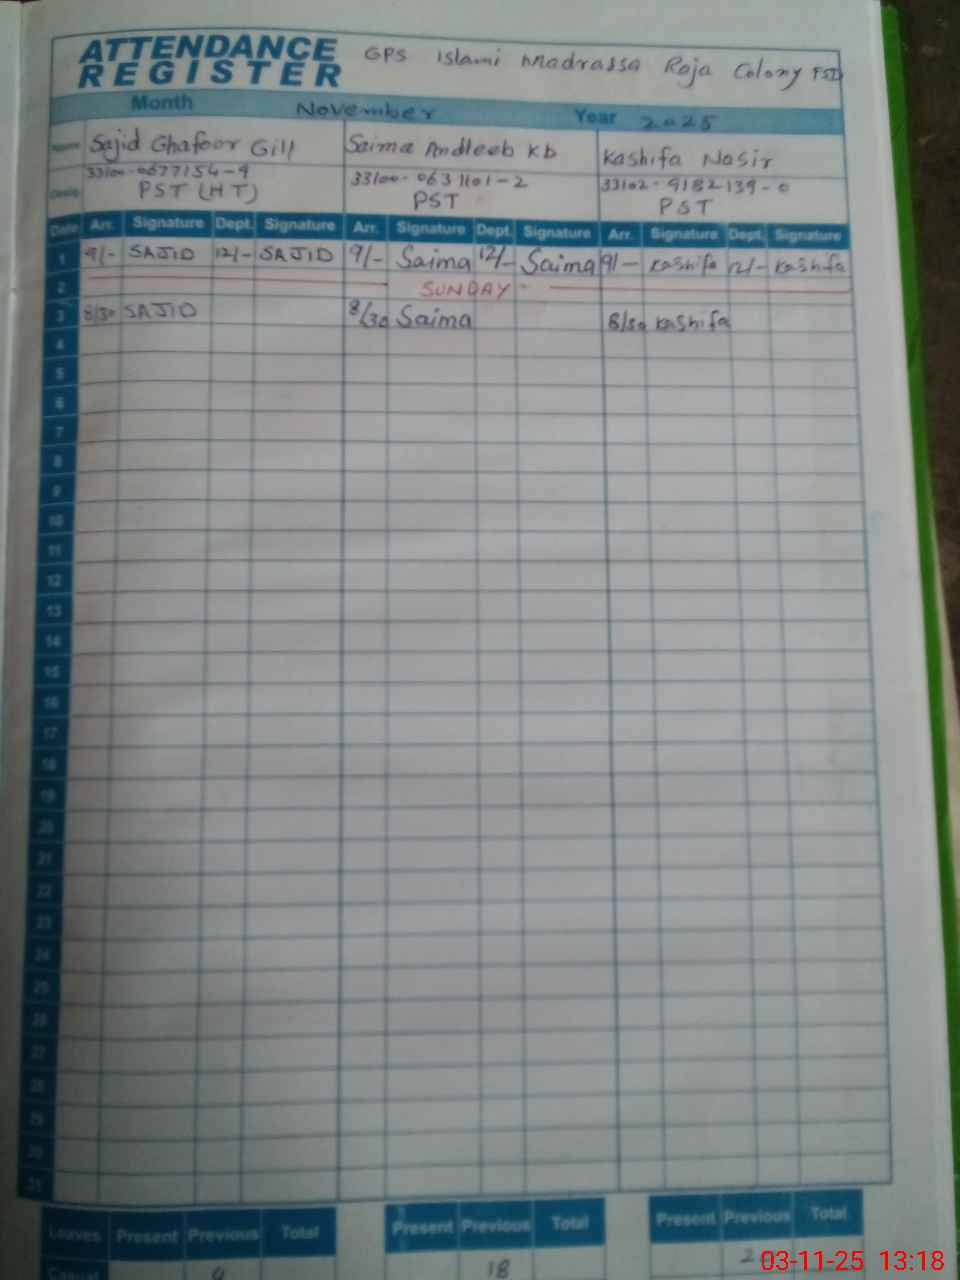 ATTENDANCE REGISTER GPS Islami Madrassa Raja Colony FSD
Month November Year 2025
Name Sajid Ghafoor Gill Saima Andleeb kb Kashifa Nasir
33100-0677154-9 33100-0631101-2 33102-9182139-0
Desig PST (HT) PST PST
Date Arr. Signature Dept. Signature Arr. Signature Dept. Signature Arr. Signature Dept. Signature
1 9/- SAJID 12/- SAJID 9/- Saima 12/- Saima 9/- Kashifa 12/- Kashifa
2 SUNDAY
3 8/30 SAJID 8/30 Saima 8/30 Kashifa
4
5
6
7
8
9
10
11
12
13
14
15
16
17
18
19
20
21
22
23
24
25
26
27
28
29
30
31
Leaves Present Previous Total Present Previous Total Present Previous Total
Casual 4 18 2
03-11-25 13:18